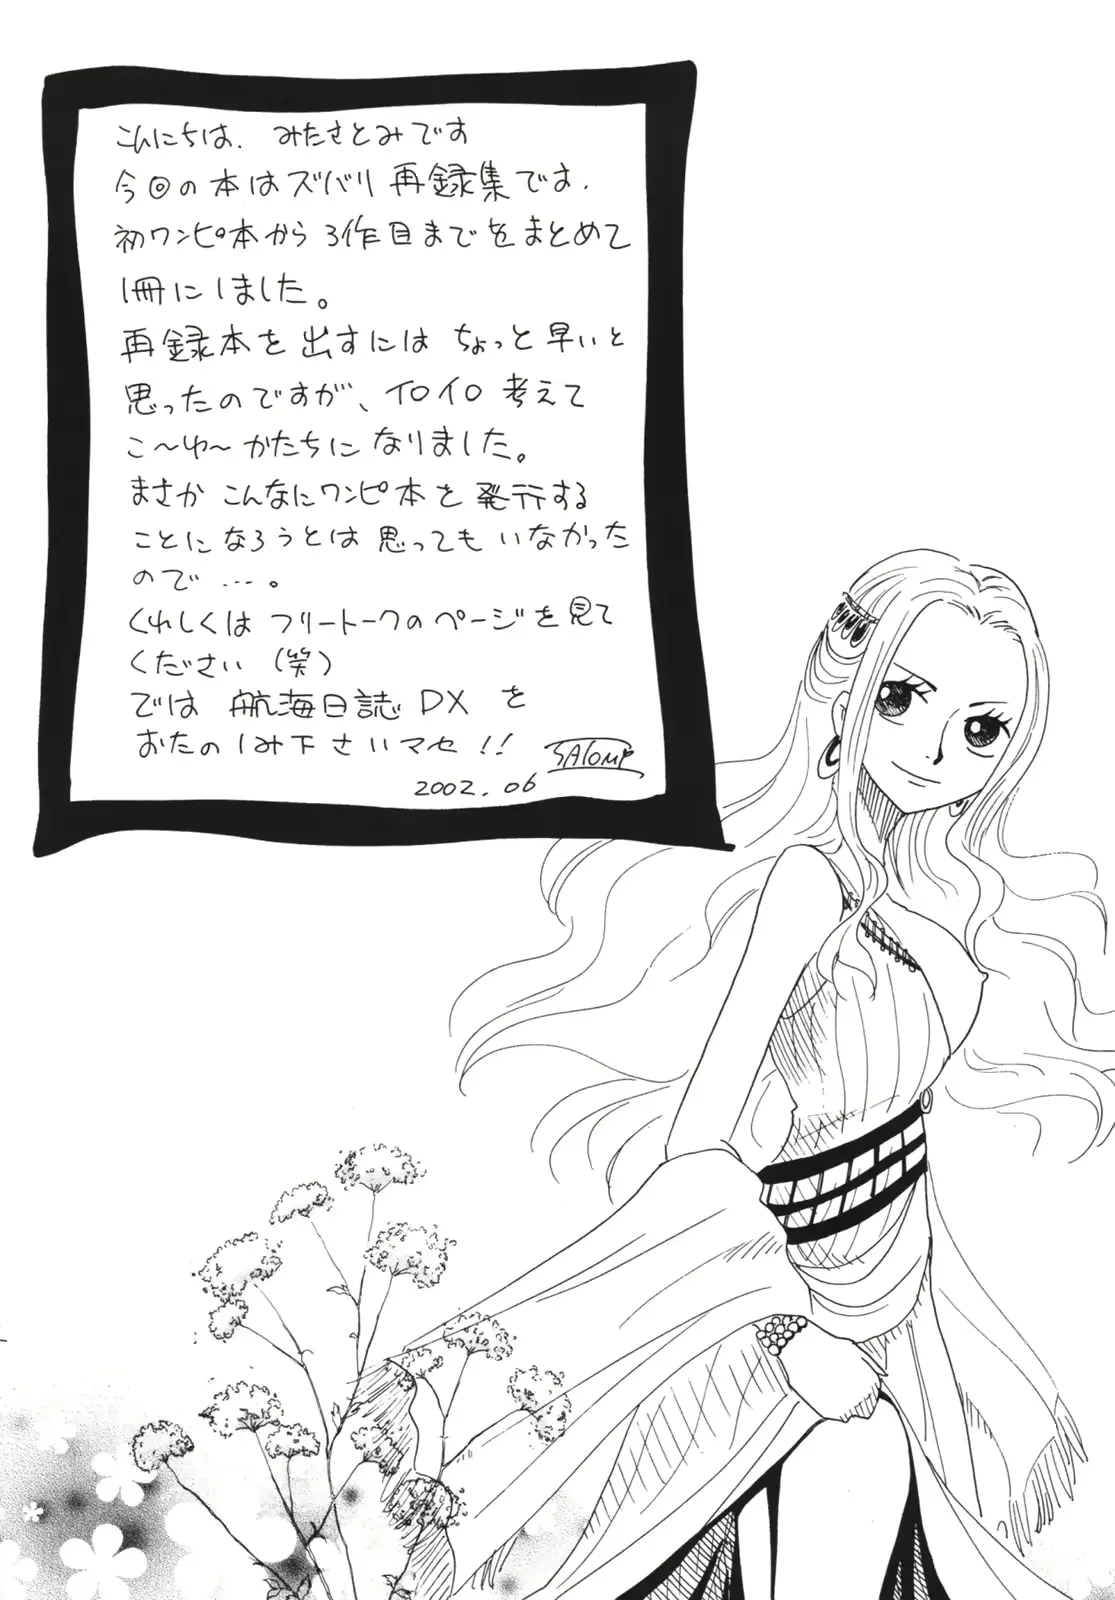 こんにちは、みたさとみです
今回の本はズバリ再録集です.
初ワンピ本から3作目までをまとめて
1冊にしました。
再録本を出すにはちょっと早いと
思ったのですが、イロイロ考えて
こ〜ゆ〜かたちになりました。
まさかこんなにワンピ本を発行する
ことになろうとは思ってもいなかった
ので…。
くわしくはフリートークのページを見て
ください(笑)
では航海日誌DXを
おたのしみ下さいマセ!!
SATOMI
2002.06